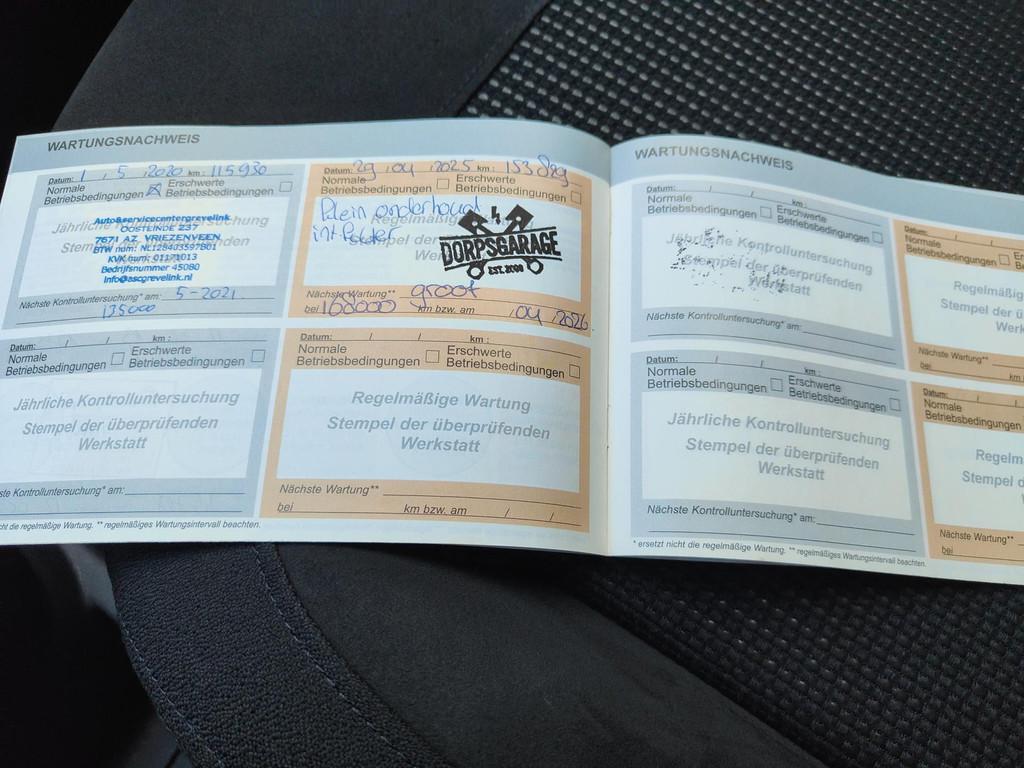 WARTUNGSNACHWEIS
Datum: 1 / 5 / 2020 km : 115930
Normale Betriebsbedingungen
Erschwerte Betriebsbedingungen
Jährliche Kontrolluntersuchung
Auto&servicecentergrevelink
OOSTEINDE 237
7671 AZ VRIEZENVEEN
BTW num: NL128403597B01
KVK num: 01171013
Bedrijfsnummer 45080
info@ascgrevelink.nl
Nächste Kontrolluntersuchung* am: 5-2021
135000
Datum: 29 / 04 / 2025 km : 153829
Normale Betriebsbedingungen
Erschwerte Betriebsbedingungen
Klein onderhoud
int
DORPSGARAGE
EST. 2000
Nächste Wartung** groot
bei 168000 km bzw. am / 04 / 2026
Datum: / / km :
Normale Betriebsbedingungen
Erschwerte Betriebsbedingungen
Jährliche Kontrolluntersuchung
Stempel der überprüfenden
Werkstatt
ste Kontrolluntersuchung* am:
Datum: / / km :
Normale Betriebsbedingungen
Erschwerte Betriebsbedingungen
Regelmäßige Wartung
Stempel der überprüfenden
Werkstatt
Nächste Wartung**
bei km bzw. am / /
cht die regelmäßige Wartung. ** regelmäßiges Wartungsintervall beachten.
WARTUNGSNACHWEIS
Datum: / / km :
Normale Betriebsbedingungen
Erschwerte Betriebsbedingungen
Jährliche Kontrolluntersuchung
Stempel der überprüfenden
Werkstatt
Nächste Kontrolluntersuchung* am:
Datum:
Normale
Betriebsbedingungen
Regelmäßig
Stempel der ü
Nächste Wartung**
bei km
Datum: / / km :
Normale Betriebsbedingungen
Erschwerte Betriebsbedingungen
Jährliche Kontrolluntersuchung
Stempel der überprüfenden
Werkstatt
Nächste Kontrolluntersuchung* am:
Datum:
Normale
Betriebsbedingungen
Regelm
Stempel d
Nächste Wartung**
bei
* ersetzt nicht die regelmäßige Wartung. ** regelmäßiges Wartungsintervall beachten.